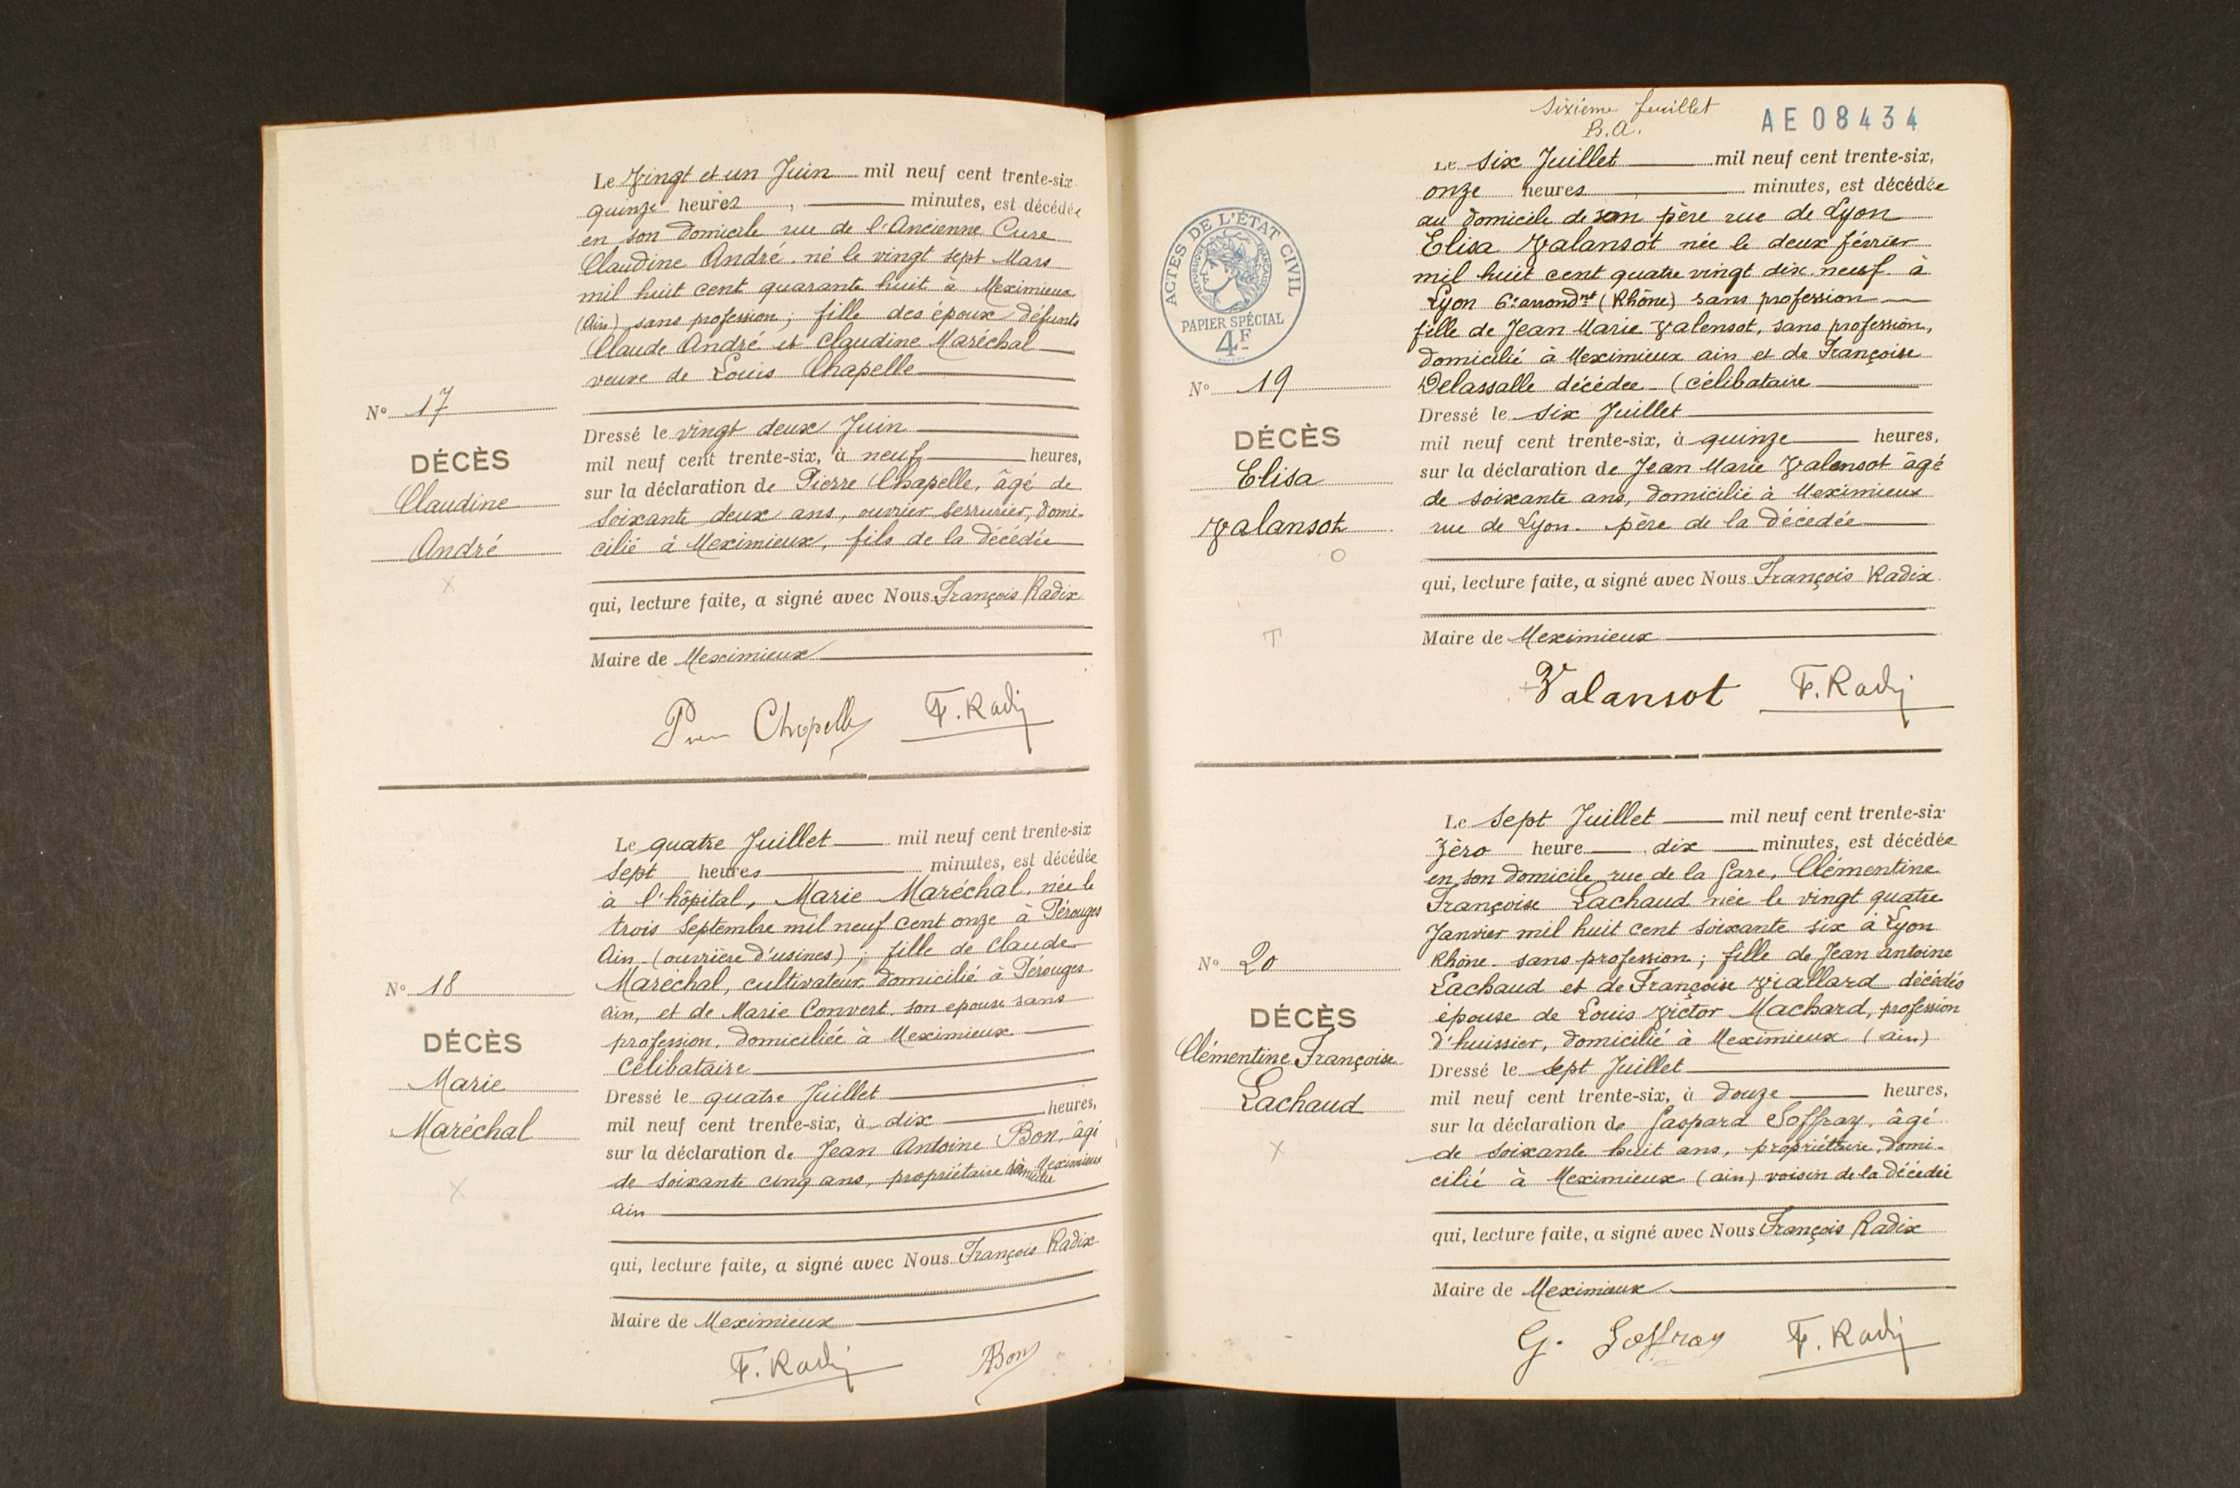 Le Vingt et un Juin mil neuf cent trente-six
quinze heures, minutes, est décédée
en son domicile rue de l'Ancienne Cure
Claudine André né le vingt sept Mars
mil huit cent quarante huit à Meximieux
(Ain) sans profession; fille des époux défunts
Claude André et Claudine Maréchal
veuve de Louis Chapelle
N° 17
DÉCÈS
Claudine
André
Dressé le vingt deux Juin
mil neuf cent trente-six, à neuf heures,
sur la déclaration de Pierre Chapelle, âgé de
soixante deux ans, ouvrier serrurier, domi-
cilié à Meximieux, fils de la décédée
qui, lecture faite, a signé avec Nous François Radix
Maire de Meximieux
Chapelle F. Radix
Le quatre Juillet mil neuf cent trente-six
sept heures minutes, est décédée
à l'hôpital, Marie Maréchal, née le
trois Septembre mil neuf cent onze à Pérouges
Ain (ouvrière d'usines); fille de Claude
Maréchal, cultivateur domicilié à Pérouges
ain, et de Marie Convert son epouse sans
profession, domiciliée à Meximieux
Célibataire
N° 18
DÉCÈS
Marie
Maréchal
Dressé le quatre Juillet
mil neuf cent trente-six, à dix heures,
sur la déclaration de Jean Antoine Bon, âgé
de soixante cinq ans, propriétaire à Meximieux
ain
qui, lecture faite, a signé avec Nous François Radix
Maire de Meximieux
F. Radix Bon
sixième feuillet
B.A.
AE08434
Le six Juillet mil neuf cent trente-six,
onze heures minutes, est décédée
au domicile de son père rue de Lyon
Elisa Valansot née le deux février
mil huit cent quatre vingt dix neuf à
Lyon 6e arrondt (Rhône) sans profession
fille de Jean Marie Valensot, sans profession,
domicilié à Meximieux ain et de Françoise
Delassalle décédée (célibataire
ACTES DE L'ÉTAT CIVIL
RÉPUBLIQUE FRANÇAISE
PAPIER SPÉCIAL
4F
N° 19
DÉCÈS
Elisa
Valansot
Dressé le six Juillet
mil neuf cent trente-six, à quinze heures,
sur la déclaration de Jean Marie Valensot âgé
de soixante ans, domicilié à Meximieux
rue de Lyon père de la décédée
qui, lecture faite, a signé avec Nous François Radix
Maire de Meximieux
Valansot F. Radix
Le sept Juillet mil neuf cent trente-six
Zéro heure dix minutes, est décédée
en son domicile rue de la Gare, Clémentine
Françoise Lachaud née le vingt quatre
Janvier mil huit cent soixante six à Lyon
Rhône sans profession; fille de Jean antoine
Lachaud et de Françoise Viallard décédés
épouse de Louis Victor Machard, profession
d'huissier, domicilié à Meximieux (ain)
N° 20
DÉCÈS
Clémentine Françoise
Lachaud
Dressé le sept Juillet
mil neuf cent trente-six, à douze heures,
sur la déclaration de Gaspard Soffray, âgé
de soixante huit ans, propriétaire, domi-
cilié à Meximieux (ain) voisin de la décédée
qui, lecture faite, a signé avec Nous François Radix
Maire de Meximieux
G. Soffray F. Radix